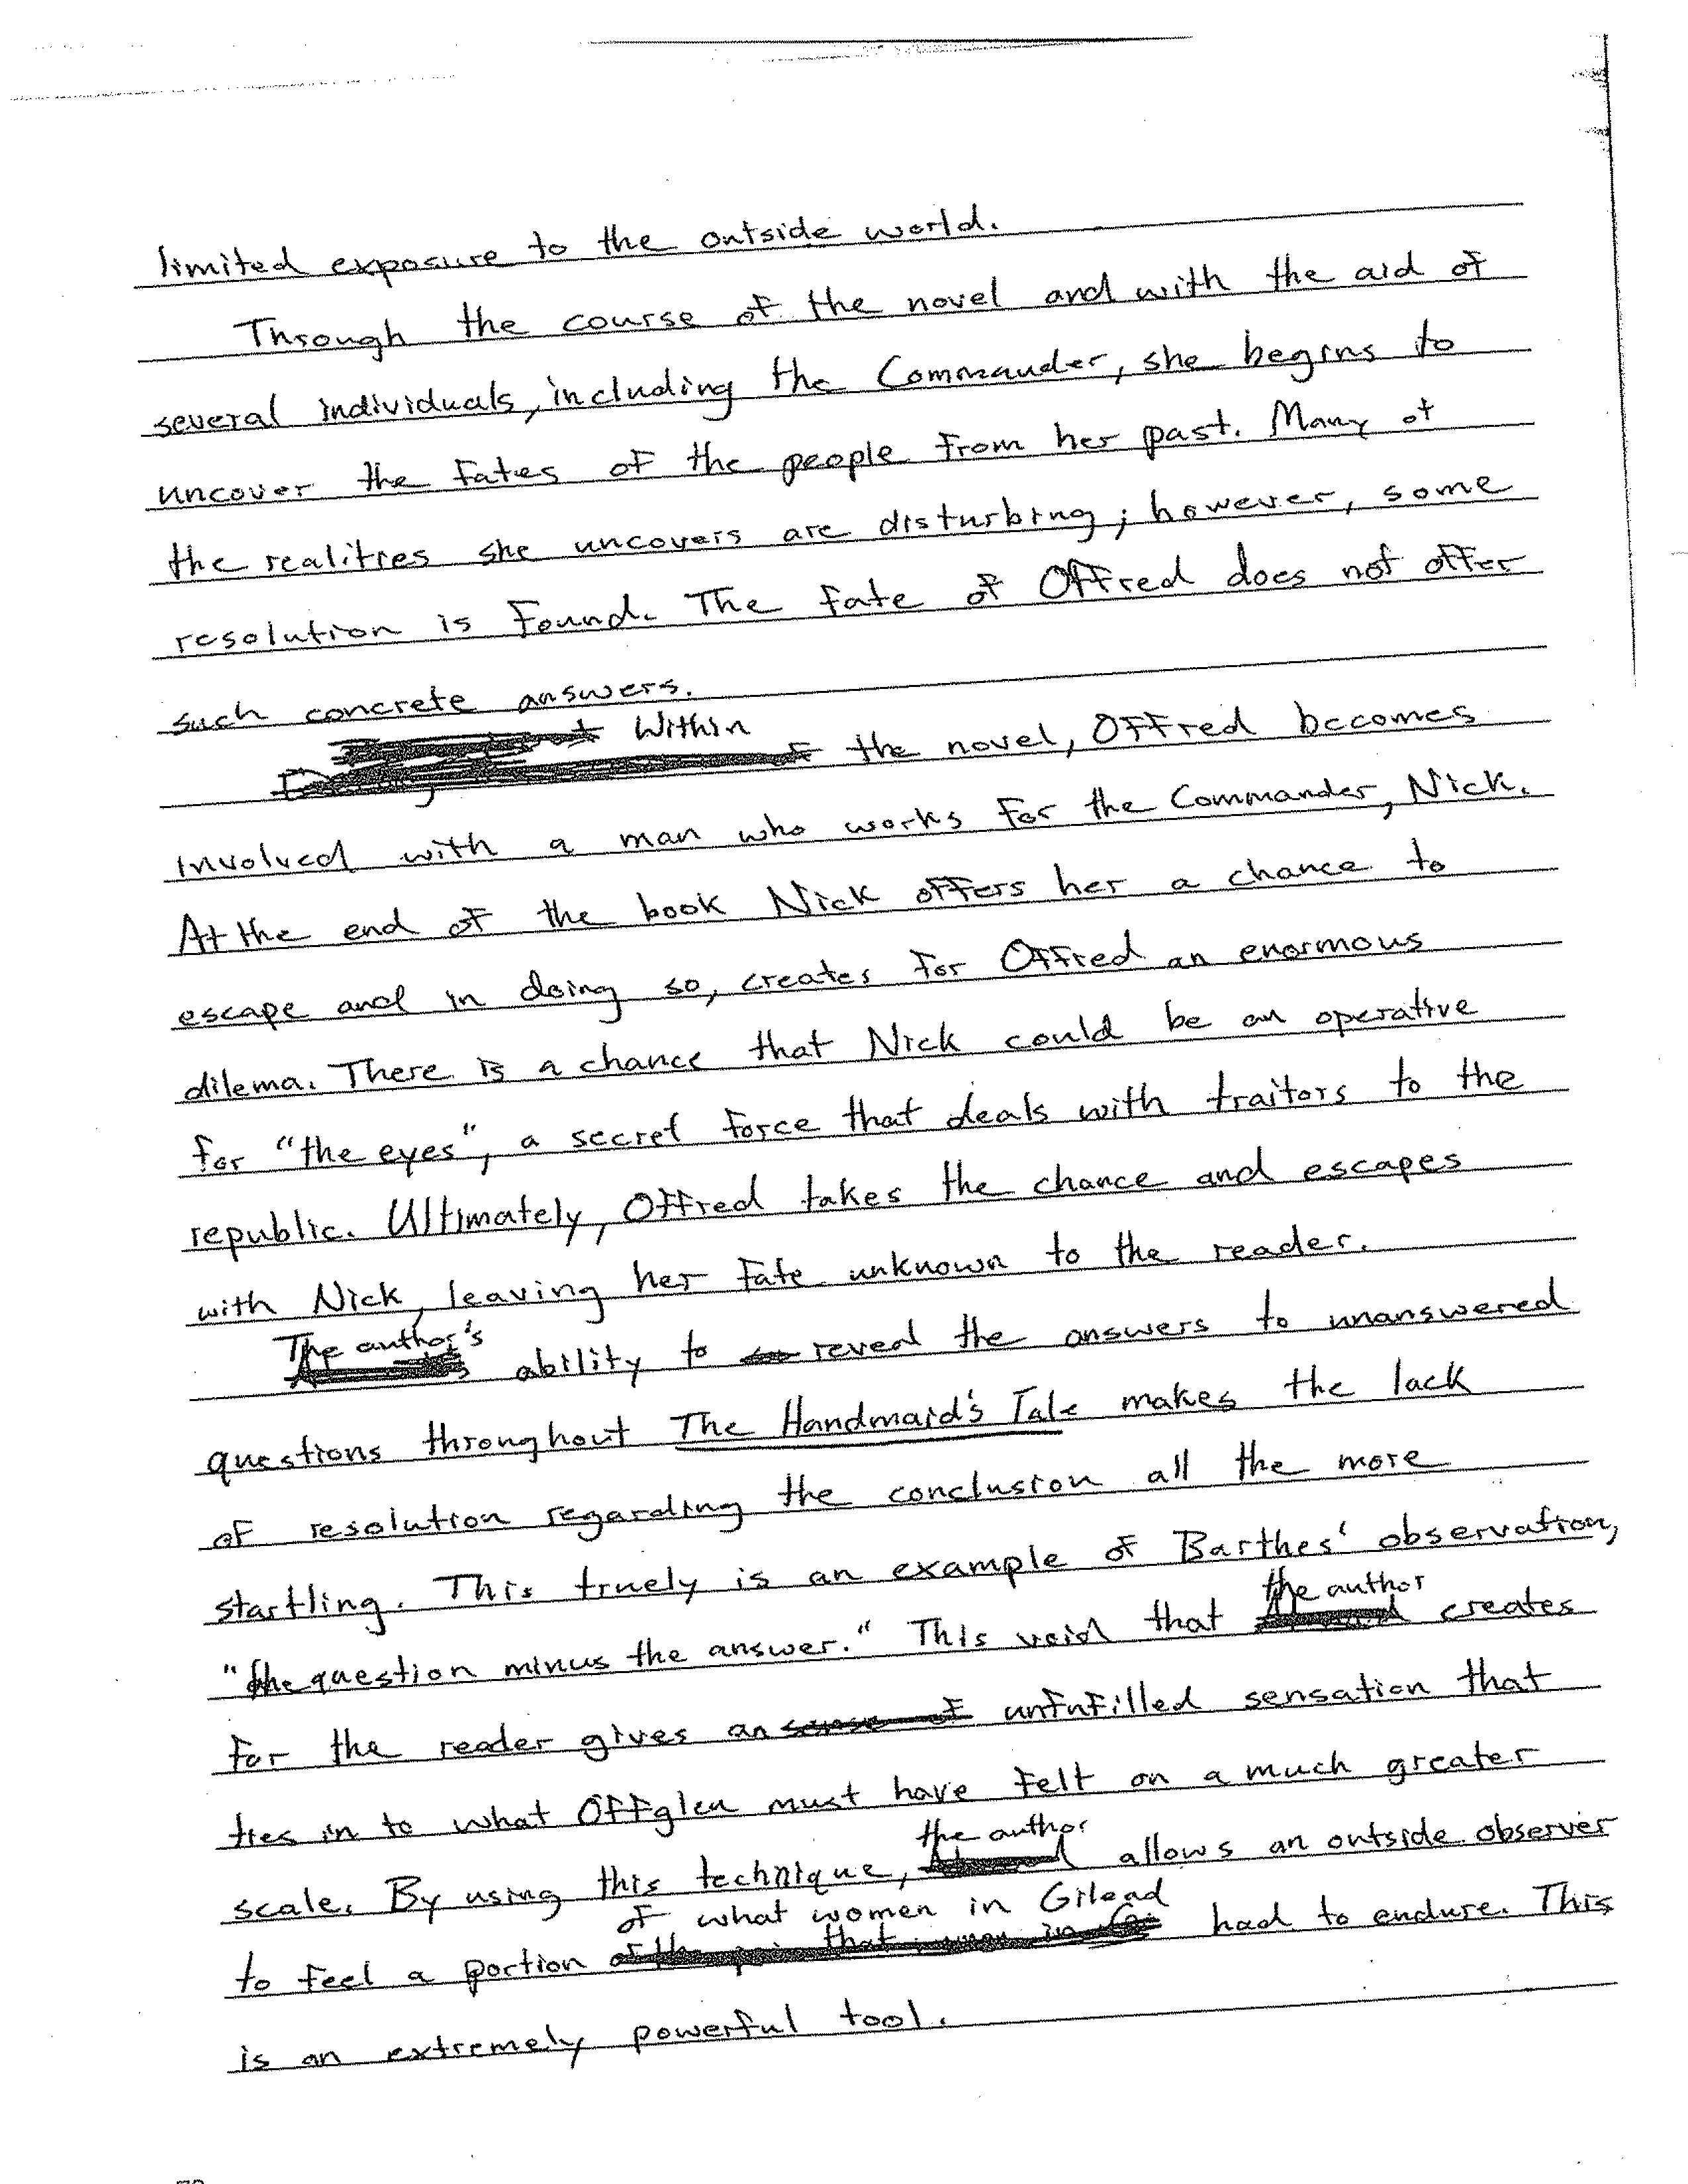 limited exposure to the outside world.
Through the course of the novel and with the aid of
several individuals, including the Commander, she begins to
uncover the fates of the people from her past. Many of
the realities she uncovers are disturbing; however, some
resolution is found. The fate of Offred does not offer
such concrete answers.
Within the novel, Offred becomes
involved with a man who works for the Commander, Nick.
At the end of the book Nick offers her a chance to
escape and in doing so, creates for Offred an enormous
dilema. There is a chance that Nick could be an operative
for "the eyes", a secret force that deals with traitors to the
republic. Ultimately, Offred takes the chance and escapes
with Nick, leaving her fate unknown to the reader.
The author's ability to reveal the answers to unanswered
questions throughout The Handmaid's Tale makes the lack
of resolution regarding the conclusion all the more
startling. This truely is an example of Barthes' observation,
"the question minus the answer." This void that the author creates
for the reader gives an unfufilled sensation that
ties in to what Offglen must have felt on a much greater
scale. By using this technique, the author allows an outside observer
to feel a portion of what women in Gilead had to endure. This
is an extremely powerful tool.